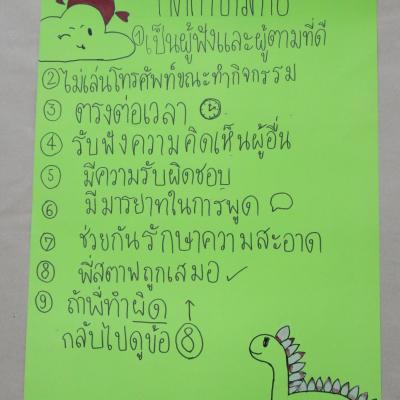 ① เป็นผู้ฟังและผู้ตามที่ดี
② ไม่เล่นโทรศัพท์ขณะทำกิจกรรม
③ ตรงต่อเวลา
④ รับฟังความคิดเห็นผู้อื่น
⑤ มีความรับผิดชอบ
⑥ มีมารยาทในการพูด
⑦ ช่วยกันรักษาความสะอาด
⑧ พี่สตาฟถูกเสมอ ✓
⑨ ถ้าพี่ทำผิด ↑
กลับไปดูข้อ ⑧